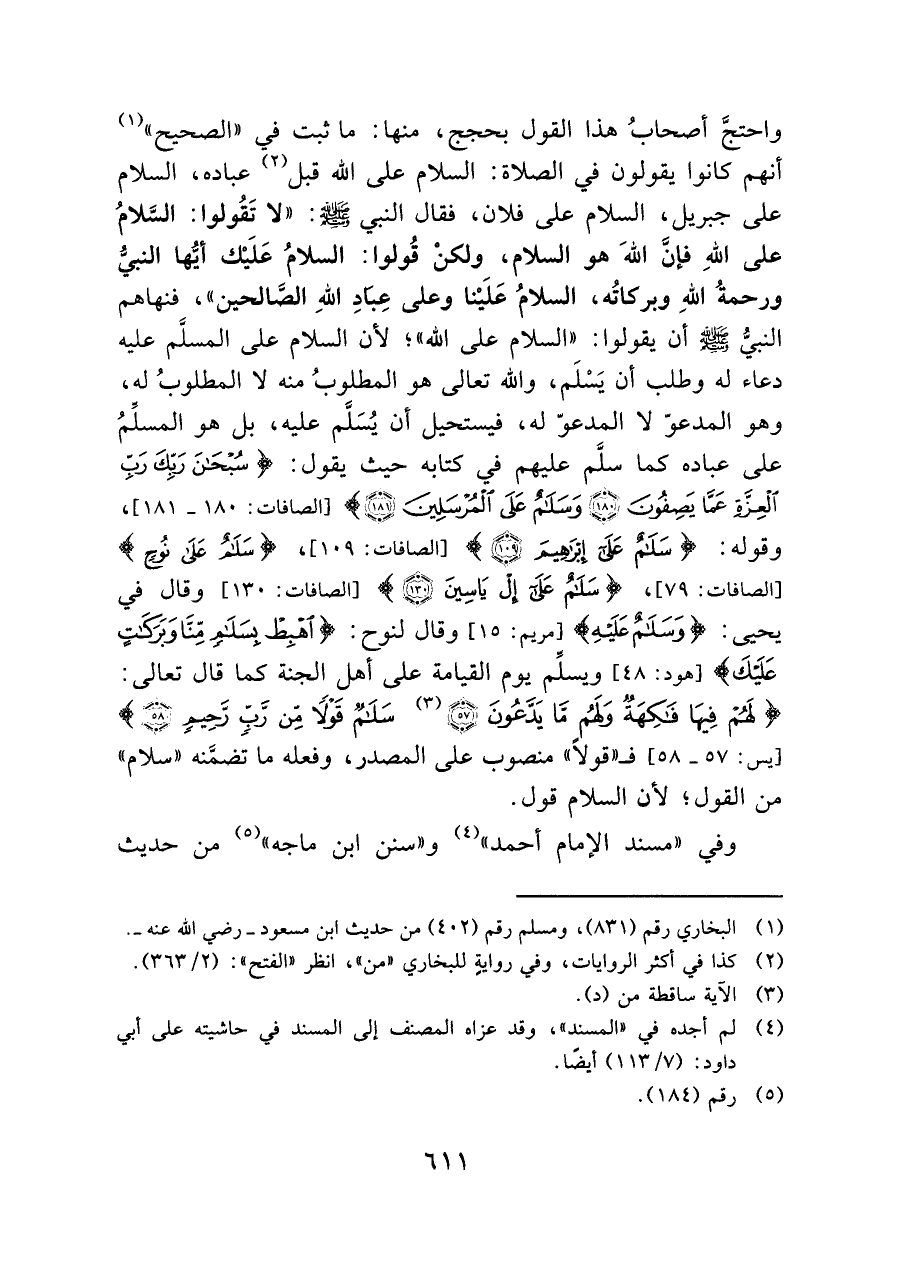 واحتجَّ أصحابُ هذا القول بحجج، منها: ما ثبت في «الصحيح»(١)
أنهم كانوا يقولون في الصلاة: السلام على الله قبل(٢) عباده، السلام
على جبريل، السلام على فلان، فقال النبي ﷺ: «لا تَقُولوا: السَّلامُ
على اللهِ فإنَّ اللهَ هو السلام، ولكنْ قُولوا: السلامُ عَلَيْك أيُّها النبيُّ
ورحمةُ اللهِ وبركاتُه، السلامُ عَلَيْنا وعلى عِبَادِ اللهِ الصَّالحين»، فنهاهم
النبيُّ ﷺ أن يقولوا: «السلام على الله»؛ لأن السلام على المسلَّم عليه
دعاء له وطلب أن يَسْلَم، والله تعالى هو المطلوبُ منه لا المطلوبُ له،
وهو المدعوّ لا المدعوّ له، فيستحيل أن يُسَلَّم عليه، بل هو المسلِّمُ
على عباده كما سلَّم عليهم في كتابه حيث يقول: ﴿ سُبْحَٰنَ رَبِّكَ رَبِّ
ٱلْعِزَّةِ عَمَّا يَصِفُونَ ۝١٨٠ وَسَلَٰمٌ عَلَى ٱلْمُرْسَلِينَ ۝١٨١ ﴾ [الصافات: ١٨٠ ـ ١٨١]،
وقوله: ﴿ سَلَٰمٌ عَلَىٰٓ إِبْرَٰهِيمَ ۝١٠٩ ﴾ [الصافات: ١٠٩]، ﴿ سَلَٰمٌ عَلَىٰ نُوحٍ ﴾
[الصافات: ٧٩]، ﴿ سَلَٰمٌ عَلَىٰٓ إِلْ يَاسِينَ ۝١٣٠ ﴾ [الصافات: ١٣٠] وقال في
يحيى: ﴿ وَسَلَٰمٌ عَلَيْهِ﴾ [مريم: ١٥] وقال لنوح: ﴿ ٱهْبِطْ بِسَلَٰمٍ مِّنَّا وَبَرَكَٰتٍ
عَلَيْكَ﴾ [هود: ٤٨] ويسلِّم يوم القيامة على أهل الجنة كما قال تعالى:
﴿ لَهُمْ فِيهَا فَٰكِهَةٌ وَلَهُم مَّا يَدَّعُونَ ۝٥٧(٣) سَلَٰمٌ قَوْلًا مِّن رَّبٍّ رَّحِيمٍ ۝٥٨ ﴾
[يس: ٥٧ ـ ٥٨] فـ«قولاً» منصوب على المصدر، وفعله ما تضمَّنه «سلام»
من القول؛ لأن السلام قول.
وفي «مسند الإمام أحمد»(٤) و«سنن ابن ماجه»(٥) من حديث
(١) البخاري رقم (٨٣١)، ومسلم رقم (٤٠٢) من حديث ابن مسعود ـ رضي الله عنه ـ.
(٢) كذا في أكثر الروايات، وفي روايةٍ للبخاري «من»، انظر «الفتح»: (٣٦٣/٢).
(٣) الآية ساقطة من (د).
(٤) لم أجده في «المسند»، وقد عزاه المصنف إلى المسند في حاشيته على أبي
داود: (١١٣/٧) أيضًا.
(٥) رقم (١٨٤).
٦١١